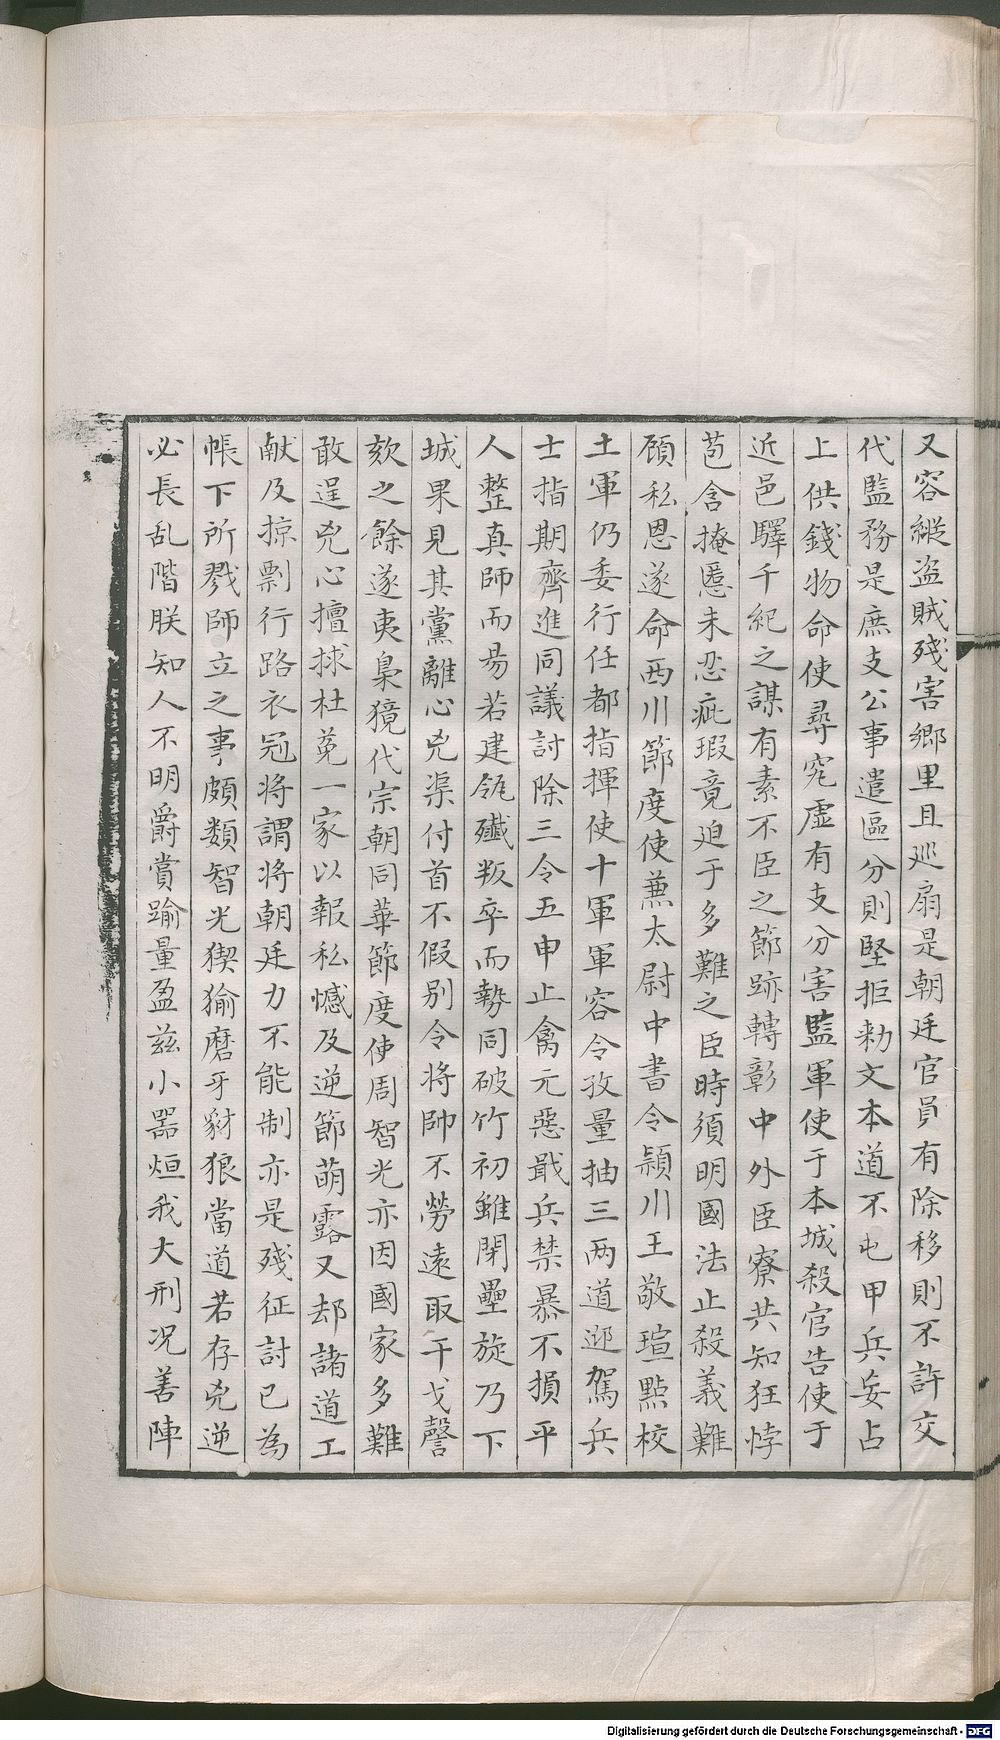 又容縱盗賊殘害鄉里且巡扇是朝廷官員有除移則不許交
代監務是庶支公事遣區分則堅拒勅文本道不屯甲兵妄占
上供錢物命使尋究虛有支分害監軍使于本城殺官告使于
近邑驛千紀之謀有素不臣之節跡轉彰中外臣寮共知狂悖
苞含掩慝未忍疵瑕竟迫于多難之臣時須明國法止殺義難
顧私恩遂命西川節度使蕪太尉中書令頴川王敬瑄㸃校
土軍仍委行任都指揮使十軍軍容令孜量抽三两道迎駕兵
士指期齊進同議討除三令五申止禽元惡戢兵禁暴不損平
人整真師而昜若建瓴殲叛卒而勢同破竹初雖閉壘旋乃下
城果見其黨離心兇渠付首不假别令將帥不勞遠取干戈罄
欬之餘遂夷梟獍代宗朝同華節度使周智光亦因國家多難
敢逞兇心擅捄杜冕一家以報私憾及逆節萌露又却諸道工
献及掠剽行路衣冠將謂將朝廷力不能制亦是殘征討已為
帳下所戮師立之事頗類智光猰㺄磨牙豺狼當道若存兇逆
必長乱階朕知人不明爵賞踰量盈兹小噐烜我大刑况善陣
Digitalisierung gefördert durch die Deutsche Forschungsgemeinschaft - DFG